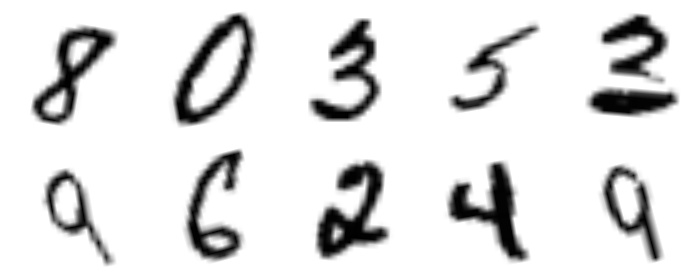 8 0 3 5
9 6 2 4 9